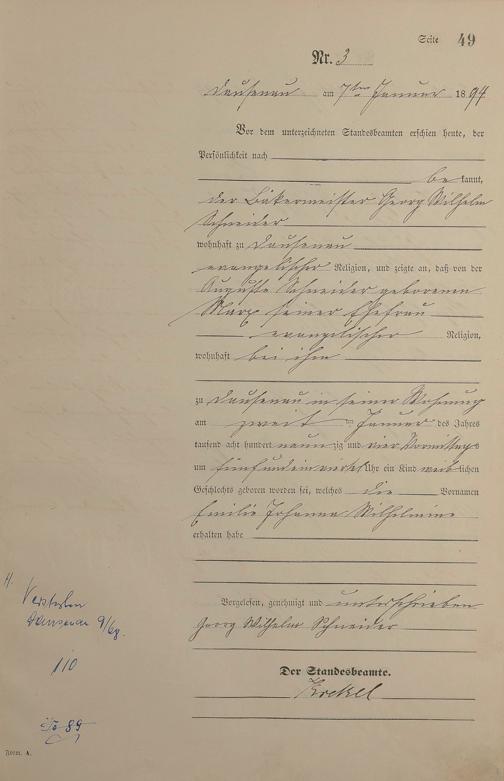 Seite 49
Nr. 3
Dausenau am 7ten Januar 1894
Vor dem unterzeichneten Standesbeamten erschien heute, der
Persönlichkeit nach
be kannt,
der Bäkermeister Georg Wilhelm
Schneider
wohnhaft zu Dausenau
evangelischer Religion, und zeigte an, daß von der
Auguste Schneider geborenen
Marx seiner Ehefrau
evangelischer Religion,
wohnhaft bei ihm
zu Dausenau in seiner Wohnung
am zweiten Januar des Jahres
tausend acht hundert neunzig und vier Vormittags
um fünfundeinviertel Uhr ein Kind weiblichen
Geschlechts geboren worden sei, welches die Vornamen
Emilie Johanna Wilhelmine
erhalten habe
Vorgelesen, genehmigt und unterschrieben
Georg Wilhelm Schneider
Der Standesbeamte.
Krekel
H. Verstorben
Dausenau 9/69.
110
89
Form. A.